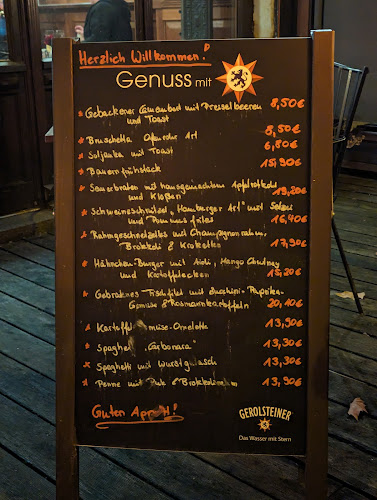 Herzlich Willkommen!
Genuss mit
Gebackener Camembert mit Preiselbeeren 8,50€
und Toast
Bruschetta Art 8,50€
Soljanka mit Toast 6,80€
Bauernfrühstück 15,90€
Sauerbraten mit hausgemachtem Apfelrotkohl
und Klößen 19,20€
Schweineschnitzel „Hamburger Art" mit Salat
und Pommes frites 16,40€
Rahmgeschnetzeltes mit Champignonrahm,
Brokkoli & Kroketten 17,90€
Hähnchen-Burger mit Aioli, Mango Chutney
und Kartoffelecken 15,20€
Gebratenes Fischfilet mit Zucchini-Paprika-
Gemüse & Rosmarinkartoffeln 20,10€
Kartoffel müse-Omelette 13,90€
Spaghetti „Carbonara" 13,30€
Spaghetti mit Wurstgulasch 13,30€
Penne mit 13,90€
Guten Appetit!
GEROLSTEINER
Das Wasser mit Stern